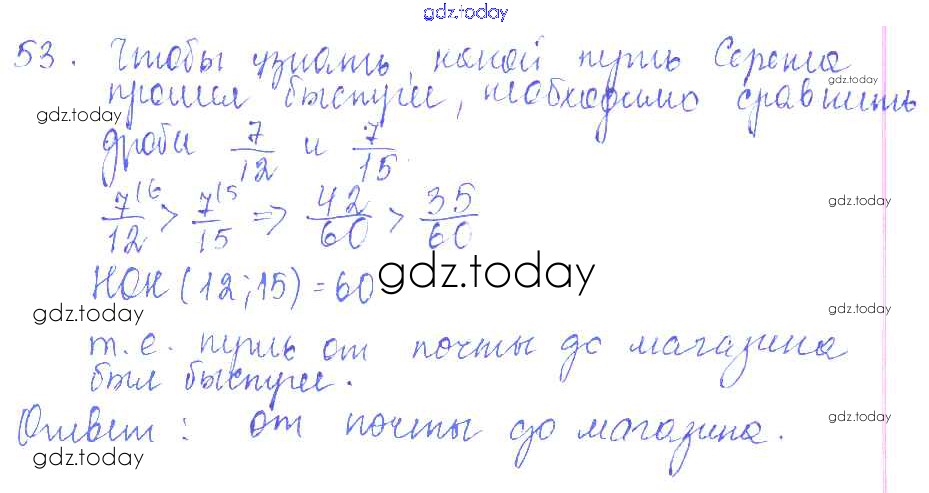 gdz.today
53. Чтобы узнать, какой путь Сережа
прошел быстрее, необходимо сравнить
gdz.today
gdz.today
дроби 7/12 и 7/15.
7/12 (6 > 7/15 (5 => 42/60 > 35/60
gdz.today
НОК (12; 15) = 60
gdz.today
gdz.today
gdz.today
т.е. путь от почты до магазина
был быстрее.
Ответ: от почты до магазина.
gdz.today
gdz.today